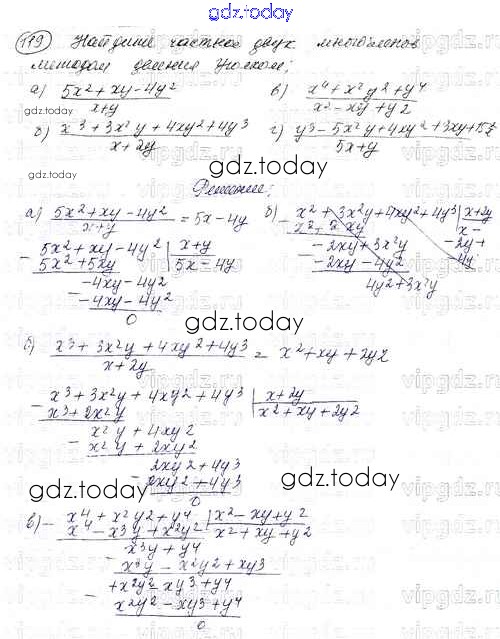 gdz.today
119 Найдите частное двух многочленов
методом деления уголком:
а) 5x²+xy-4y² / x+y в) x⁴+x²y²+y⁴ / x²-xy+y²
gdz.today
б) x³+3x²y+4xy²+4y³ / x+2y г) y³-5x²y+4xy²+3xy+15x / 5x+y
gdz.today
gdz.today
Решение:
а) 5x²+xy-4y² / x+y = 5x-4y б) x²+3x²y+4xy²+4y³ | x+2y
- 5x²+xy-4y² | x+y
5x²+5xy | 5x-4y
-4xy-4y²
-4xy-4y²
0
- x²+2xy x-
-2xy+3x²y -2y+
-2xy-4y² -4y
4y²+3x²y
gdz.today
б) x³+3x²y+4xy²+4y³ / x+2y = x²+xy+2y²
- x³+3x²y+4xy²+4y³ | x+2y
x³+2x²y | x²+xy+2y²
x²y+4xy²
- x²y+2xy²
2xy²+4y³
- 2xy²+4y³
0
gdz.today
gdz.today
в) - x⁴+x²y²+y⁴ | x²-xy+y²
x⁴-x³y+x²y² | x²+xy+y²
x³y+y⁴
- x³y-x²y²+xy³
+x²y²-xy³+y⁴
- x²y²-xy³+y⁴
0
vipgdz.ru